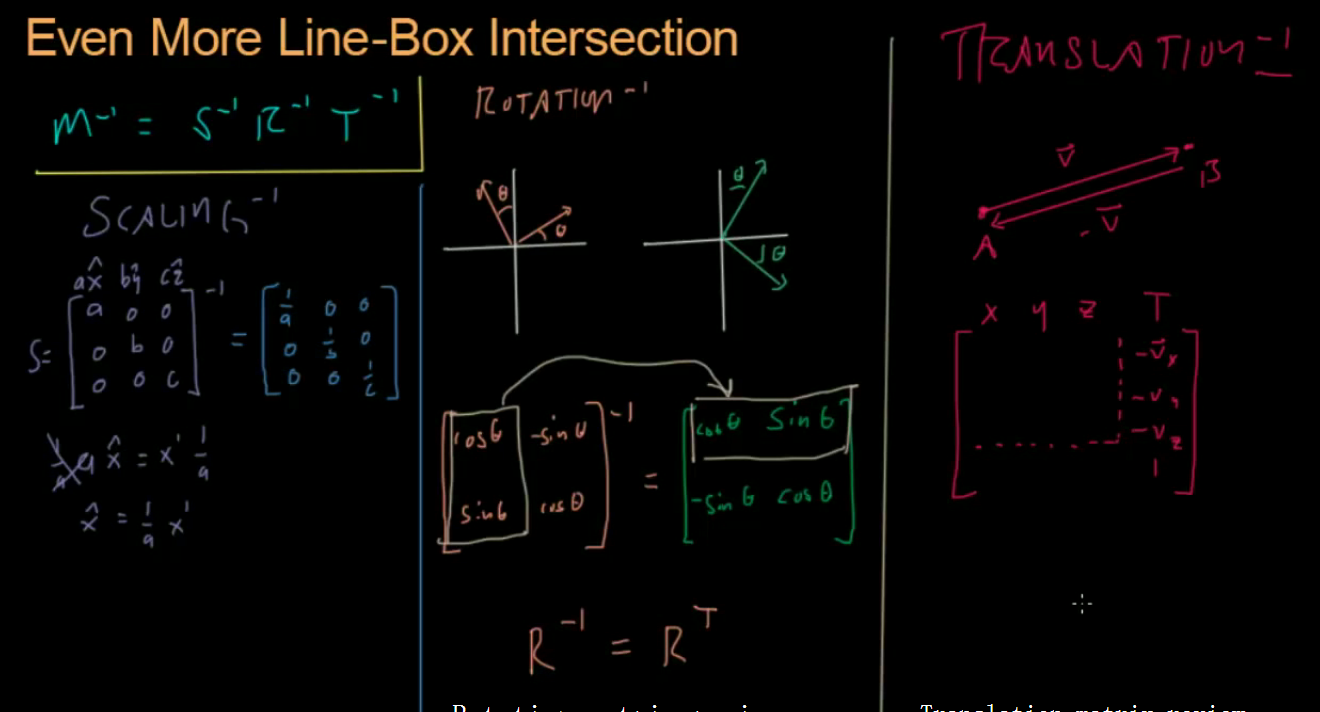 Even More Line-Box Intersection
M⁻¹ = S⁻¹ R⁻¹ T⁻¹
SCALING⁻¹
ax̂ bŷ cẑ
S= [a 0 0
0 b 0
0 0 c]⁻¹ = [1/a 0 0
0 1/b 0
0 0 1/c]
1/a a x̂ = x' 1/a
x̂ = 1/a x'
ROTATION⁻¹
θ θ
θ θ
[cosθ -sinθ
sinθ cosθ]⁻¹ = [cosθ sinθ
-sinθ cosθ]
R⁻¹ = Rᵀ
TRANSLATION⁻¹
v⃗
B
-v⃗
A
x y z T
-v⃗x
-vy
-vz
1